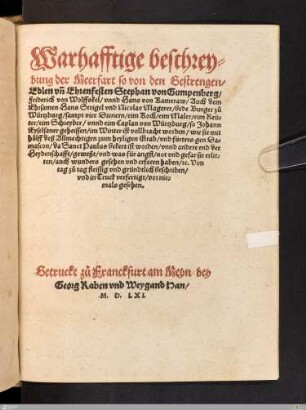 Warhafftige beschrey-
bung der Meerfart so von den Gestrengen/
Edlen vñ Ehrnfesten Stephan von Gumpenberg/
Friderich von Wolffskel/ vnnd Hans von Kameraw/ Auch dem
Ersamen Hans Strigel vnd Nicolas Magerer/ bede Burger zů
Würtzburg/ sampt vier Dienern/ ein Koch/ ein Maler/ ein Reu-
ter/ ein Schreyber/ vnnd ein Caplan von Würtzburg/ so Johann
geheissen/ im Winter ist vollbracht worden/ wie sie mit
hülff deß Allmechtigen zum heyligen Grab/ vnd fürter gen Da-
mascon/ da Sanct Paulus bekert ist worden/ vnnd andere end der
Heydenschafft/ gewest/ vnd was für angst/ not vnd gefar sie erlit-
ten/ auch wunders gesehen vnd erfaren haben/ ꝛc. Von
tag zů tag fleissig vnd gründtlich beschriben/
vnd in Truck verfertigt/ vormit
malo gesehen.
Getruckt zů Franckfurt am Meyn/ bey
Georg Raben vnd Weygand Han/
M. D. LXI.